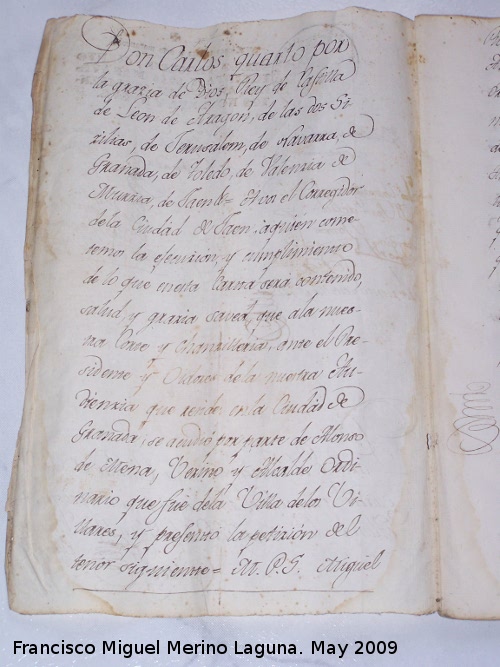 Don Carlos quarto por
la grazia de Dios, Rey de Castilla
de Leon de Aragon, de las dos Si-
zilias, de Jerusalem, de Navarra, de
Granada, de Toledo, de Valenzia de
Murzia, de Jaen &.ª A vos el Corregidor
de la Ciudad de Jaen, aquien come-
temos la ejecuzion, y cumplimiento
de lo que enesta Carta será contenido,
salud, y grazia saved, que ala nues-
tra Corte y Chanzilleria, ante el Pre-
sidente y Oidores de la nuestra Au-
dienzia que reside en la Ciudad de
Granada, se acudió por parte de Alonso
de Mena, Vezino y Alcalde Ordi-
nario que fué dela Villa delos Vi-
llares, y presentó la petizión del
tenor siguiente = M. P. S. Miguel
Francisco Miguel Merino Laguna. May 2009